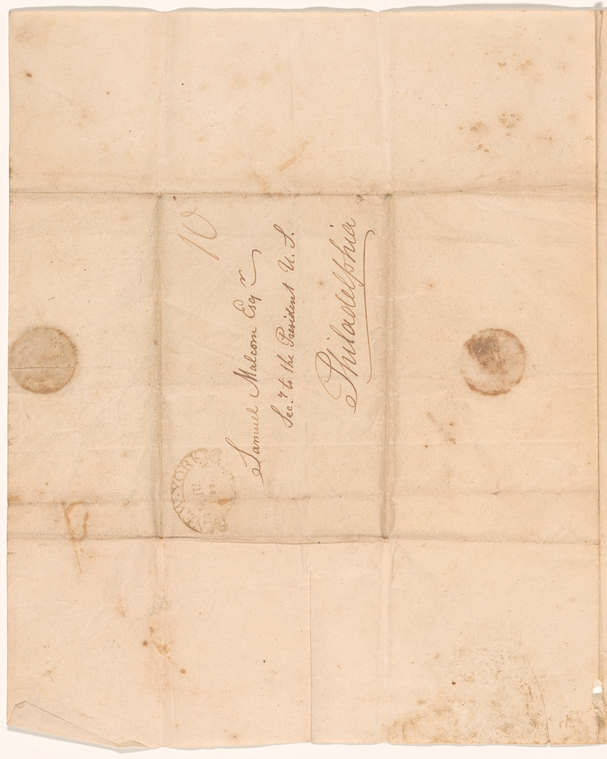 10
Samuel Malcom Esqr
Sec.y to the President U. S.
Philadelphia
NEW-YORK